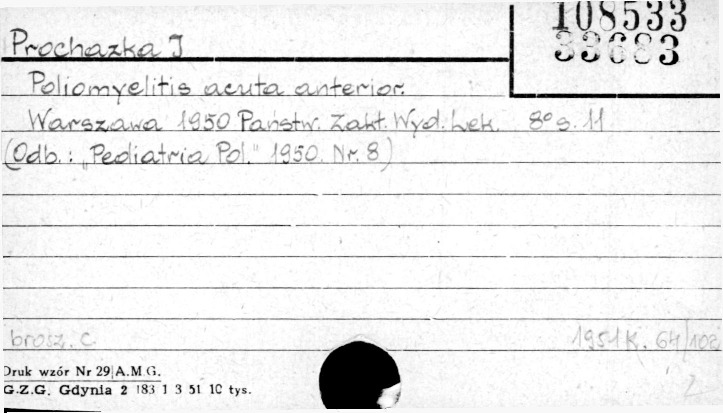 108533
33683
Prochazka J
Poliomyelitis acuta anterior.
Warszawa 1950 Państw. Zakt. Wyd. Lek. 8° s. 11
(Odb.: "Pediatria Pol." 1950. Nr. 8)
brosz. c. 1951 K. 64/102
Druk wzór Nr 29 A.M.G.
G.Z.G. Gdynia 2 183 1 3 51 10 tys.